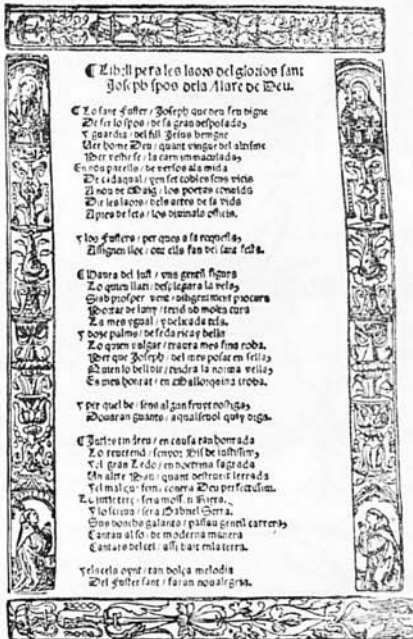 ¶ Libell pera les laors del glorios sant
Joseph spos dela Mare de Deu.
¶ Lo sant Fuster / Joseph que deu feu digne
De ser lo spos / de sa gran desposada,
y guardia / del fill Jesus benigne
Ver home Deu / quant vingue del altisme
Per vestir se / la carn immaculada,
En nou parells / de versos ala mida
De cadaqual / yen set cobles sens vicis
A nou de Maig / los poetas convida
Dir les laors / dels actes de sa vida
Apres de sets / los divinals officis.
y los Fusters / per ques a sa requesta,
Assignen lloc / ont ells fan del sant festa.
¶ Haura del just / una gentil figura
Lo quien llati / desplegara la vela,
Si ab prosper vent / diligentment procura
Portar de luny / tenint ab molta cura
La mes ygual / y delicada tela.
y dotze palms / de seda rica y bella
Lo quen vulgar / traura mes fina roba.
Per que Joseph / del mes posat en sella,
Quien lo bell dir / tindra la norma vella,
Es mes honrat / en Mallorquina troba.
y per quel be / sens algun fruyt nostiga,
Donaran guants / a qualsevol quiy diga.
¶ Jutles tindreu / en causa tan honrada
Lo reverend / senyor Bisbe
yel gran Ledo / en doctrina sagrada
Un altre Pau / quant destruit lerrada
yel mal que fem / contra Deu
Lo jutle terç / sera moss.
y lo scriva / sera Gabriel Serra.
Sus doncho galants / passau gentil carrera,
Cantau al so / de moderna manera
Cantars del cel / assi baix enla terra.
yels cels oynt / tan dolça melodia
Del Fuster sant / faran nova alegria.